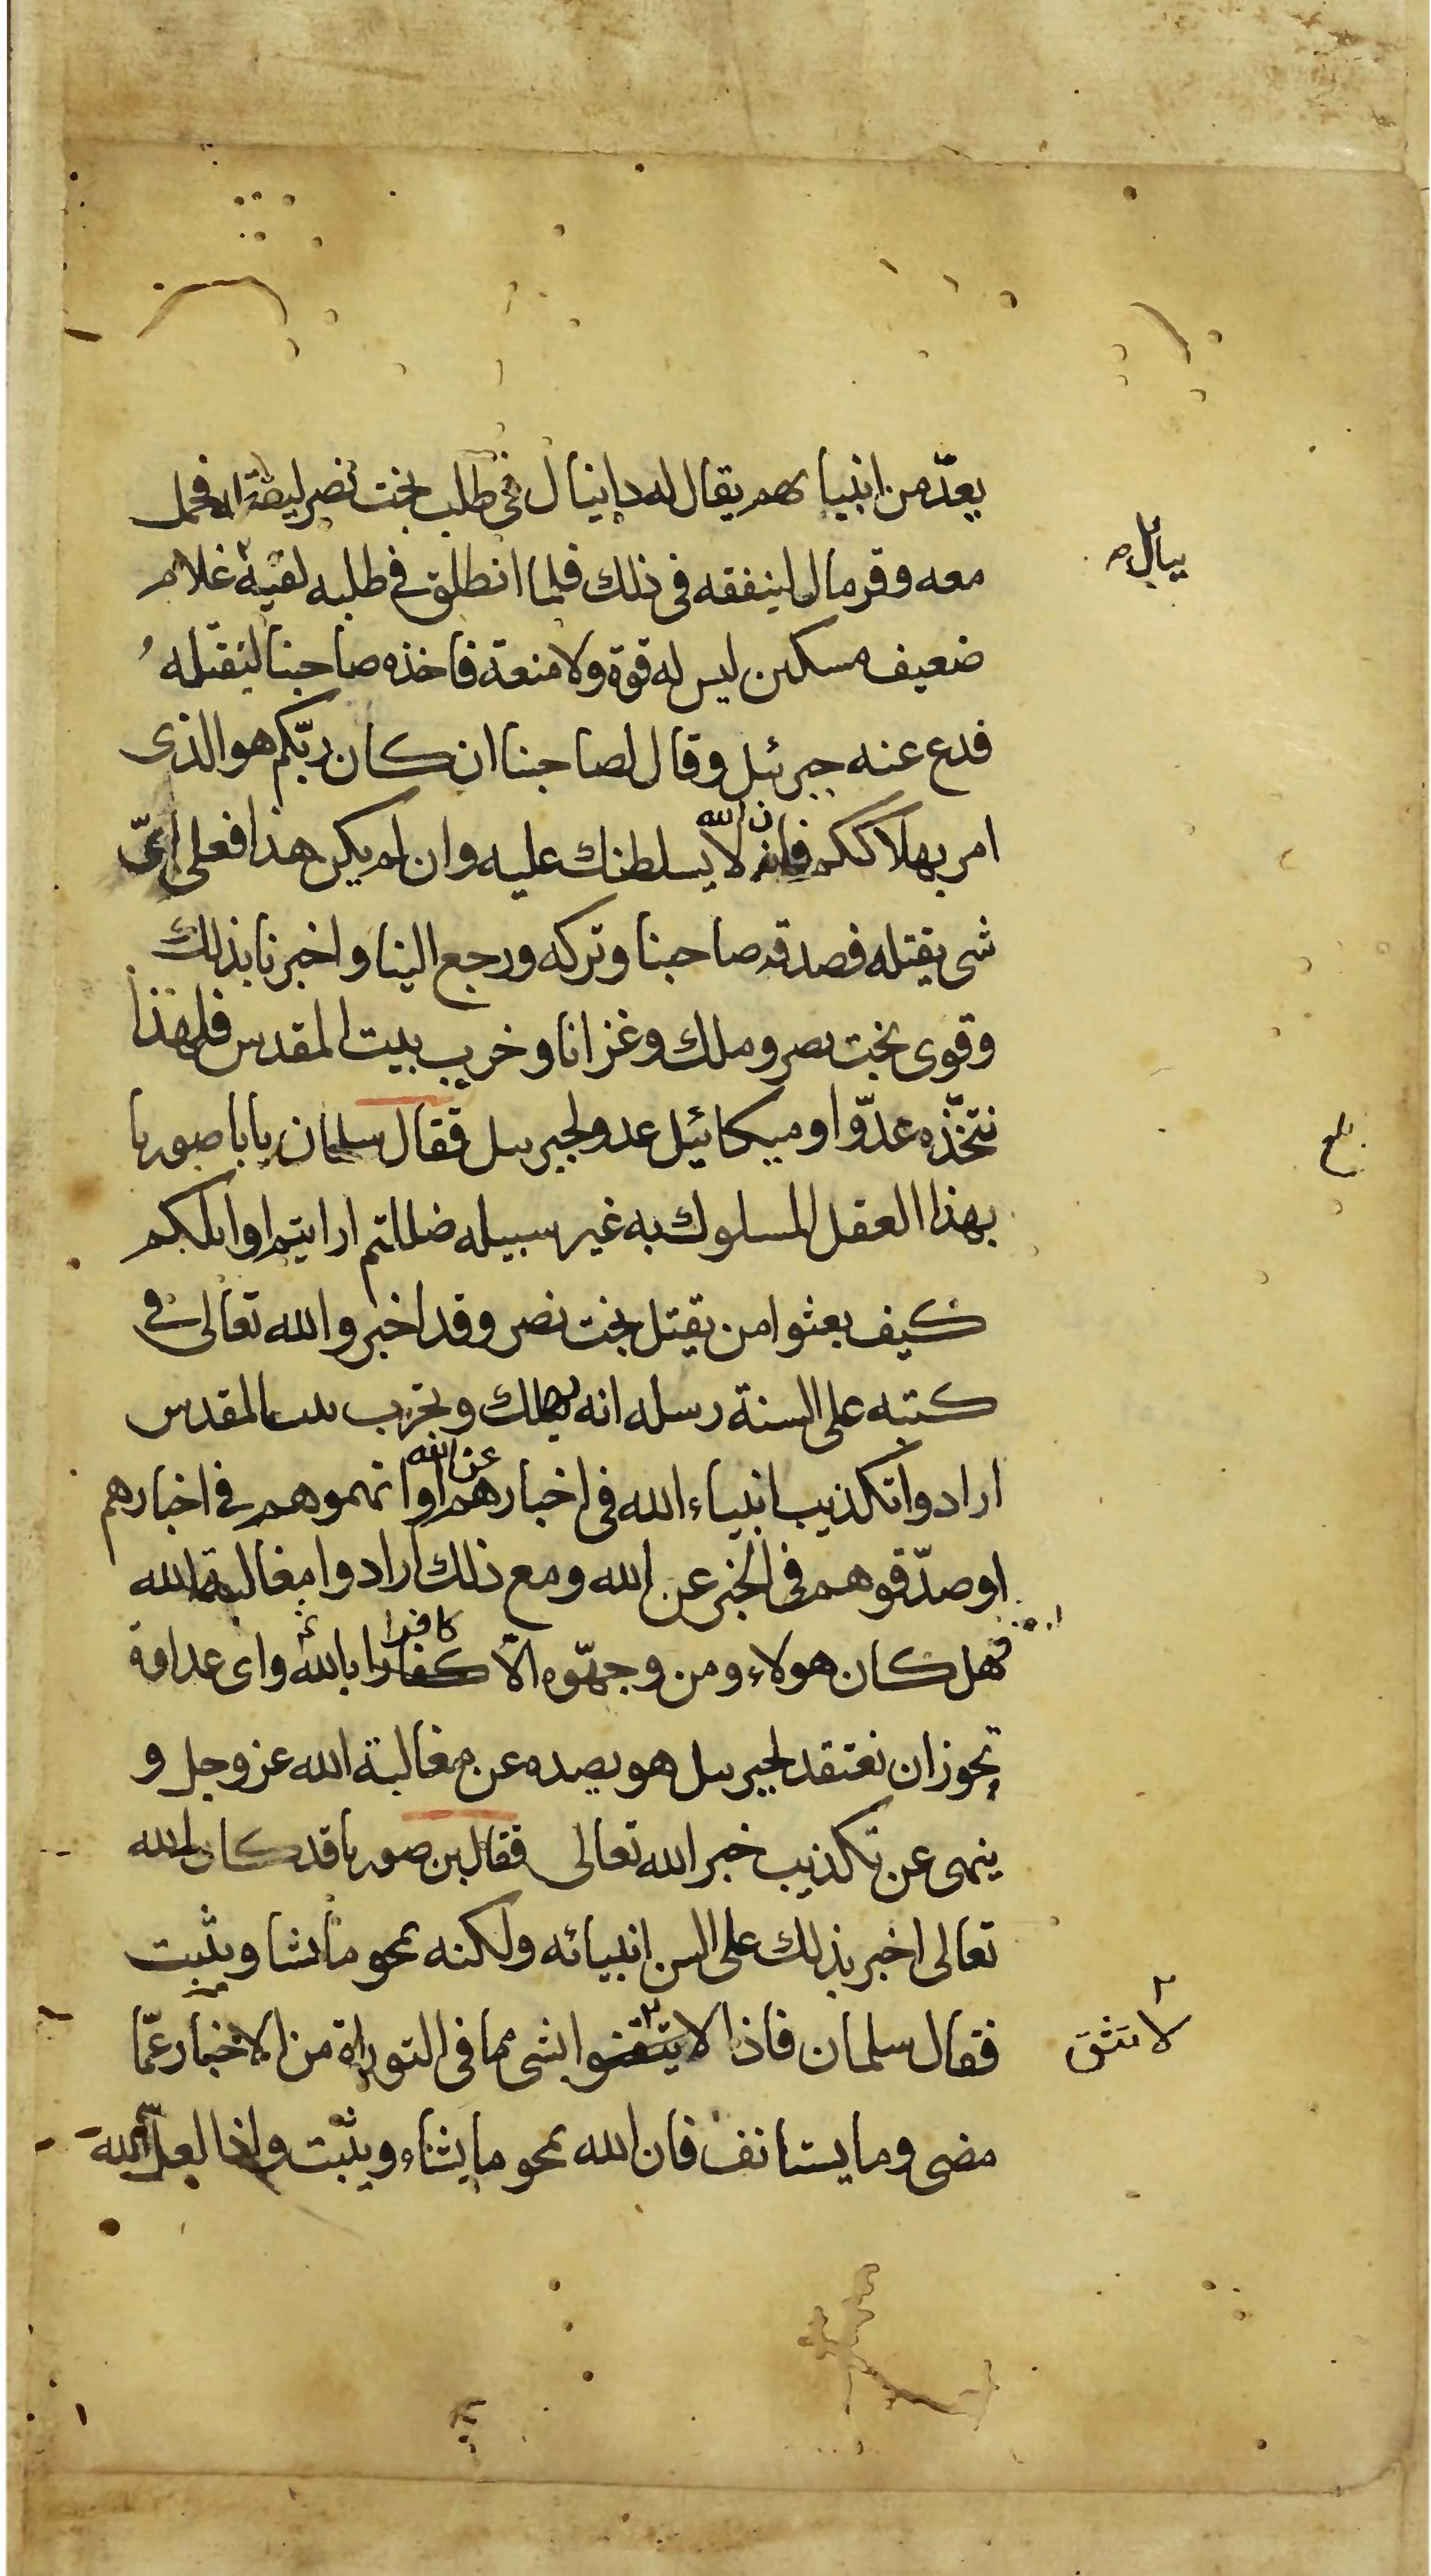 يعدّ من انبيا ئهم يقال له دانيال في طلب بخت نصر ليقتله فحمل
معه وقر مال لينفقه في ذلك فلما انطلق في طلبه لقيه غلام
ببابل صح
ضعيف مسكين ليس له قوة ولا منعة فاخذه صاحبنا ليقتله
فدفع عنه جبرئيل وقال لصاحبنا ان كان ربّكم هو الذى
امر بهلاككم فانه لا يسلطنك عليه وان لم يكن هذا فعلى اىّ
ن الله
شى يقتله فصدقه صاحبنا وتركه ورجع الينا واخبرنا بذلك
وقوى بخت نصر وملك وغزانا وخرب بيت المقدس فلهذا
نتخّذه عدّوا وميكائيل عدو لجبرىىل فقال سلمان يا با صوريا
بلغ
بهذا العقل المسلوك به غير سبيله ضللتم ارايتم اوايلكم
كيف بعثوا من يقتل بخت نصر وقد اخبر والله تعالى في
كتبه على السنة رسله انه يملك ويخرب ىىت المقدس
ارادوا تكذيب انبياء الله في اخبارهم او اتهموهم في اخبارهم
عن الله
او صدّقوهم في الخبر عن الله ومع ذلك ارادوا مغالبة الله
فهل كان هولاء ومن وجهّوه الّا كفارا بالله واى عداوة
كافرا
تجوز ان نعتقد لجبرىىل هو يصده عن مغالبة الله عز وجل و
ينهى عن تكذيب خبر الله تعالى فقال بن صوريا قد كان الله
تعالى اخبر بذلك على السن انبيائه ولكنه يمحو ما يشا ويثبت
فقال سلمان فاذا لا يتقنوا بشى مما في التوراة من الاخبار عمّا
لا تثق
مضى وما يستانف فان الله يمحو ما يشاء ويثبت واذا لعلّ الله